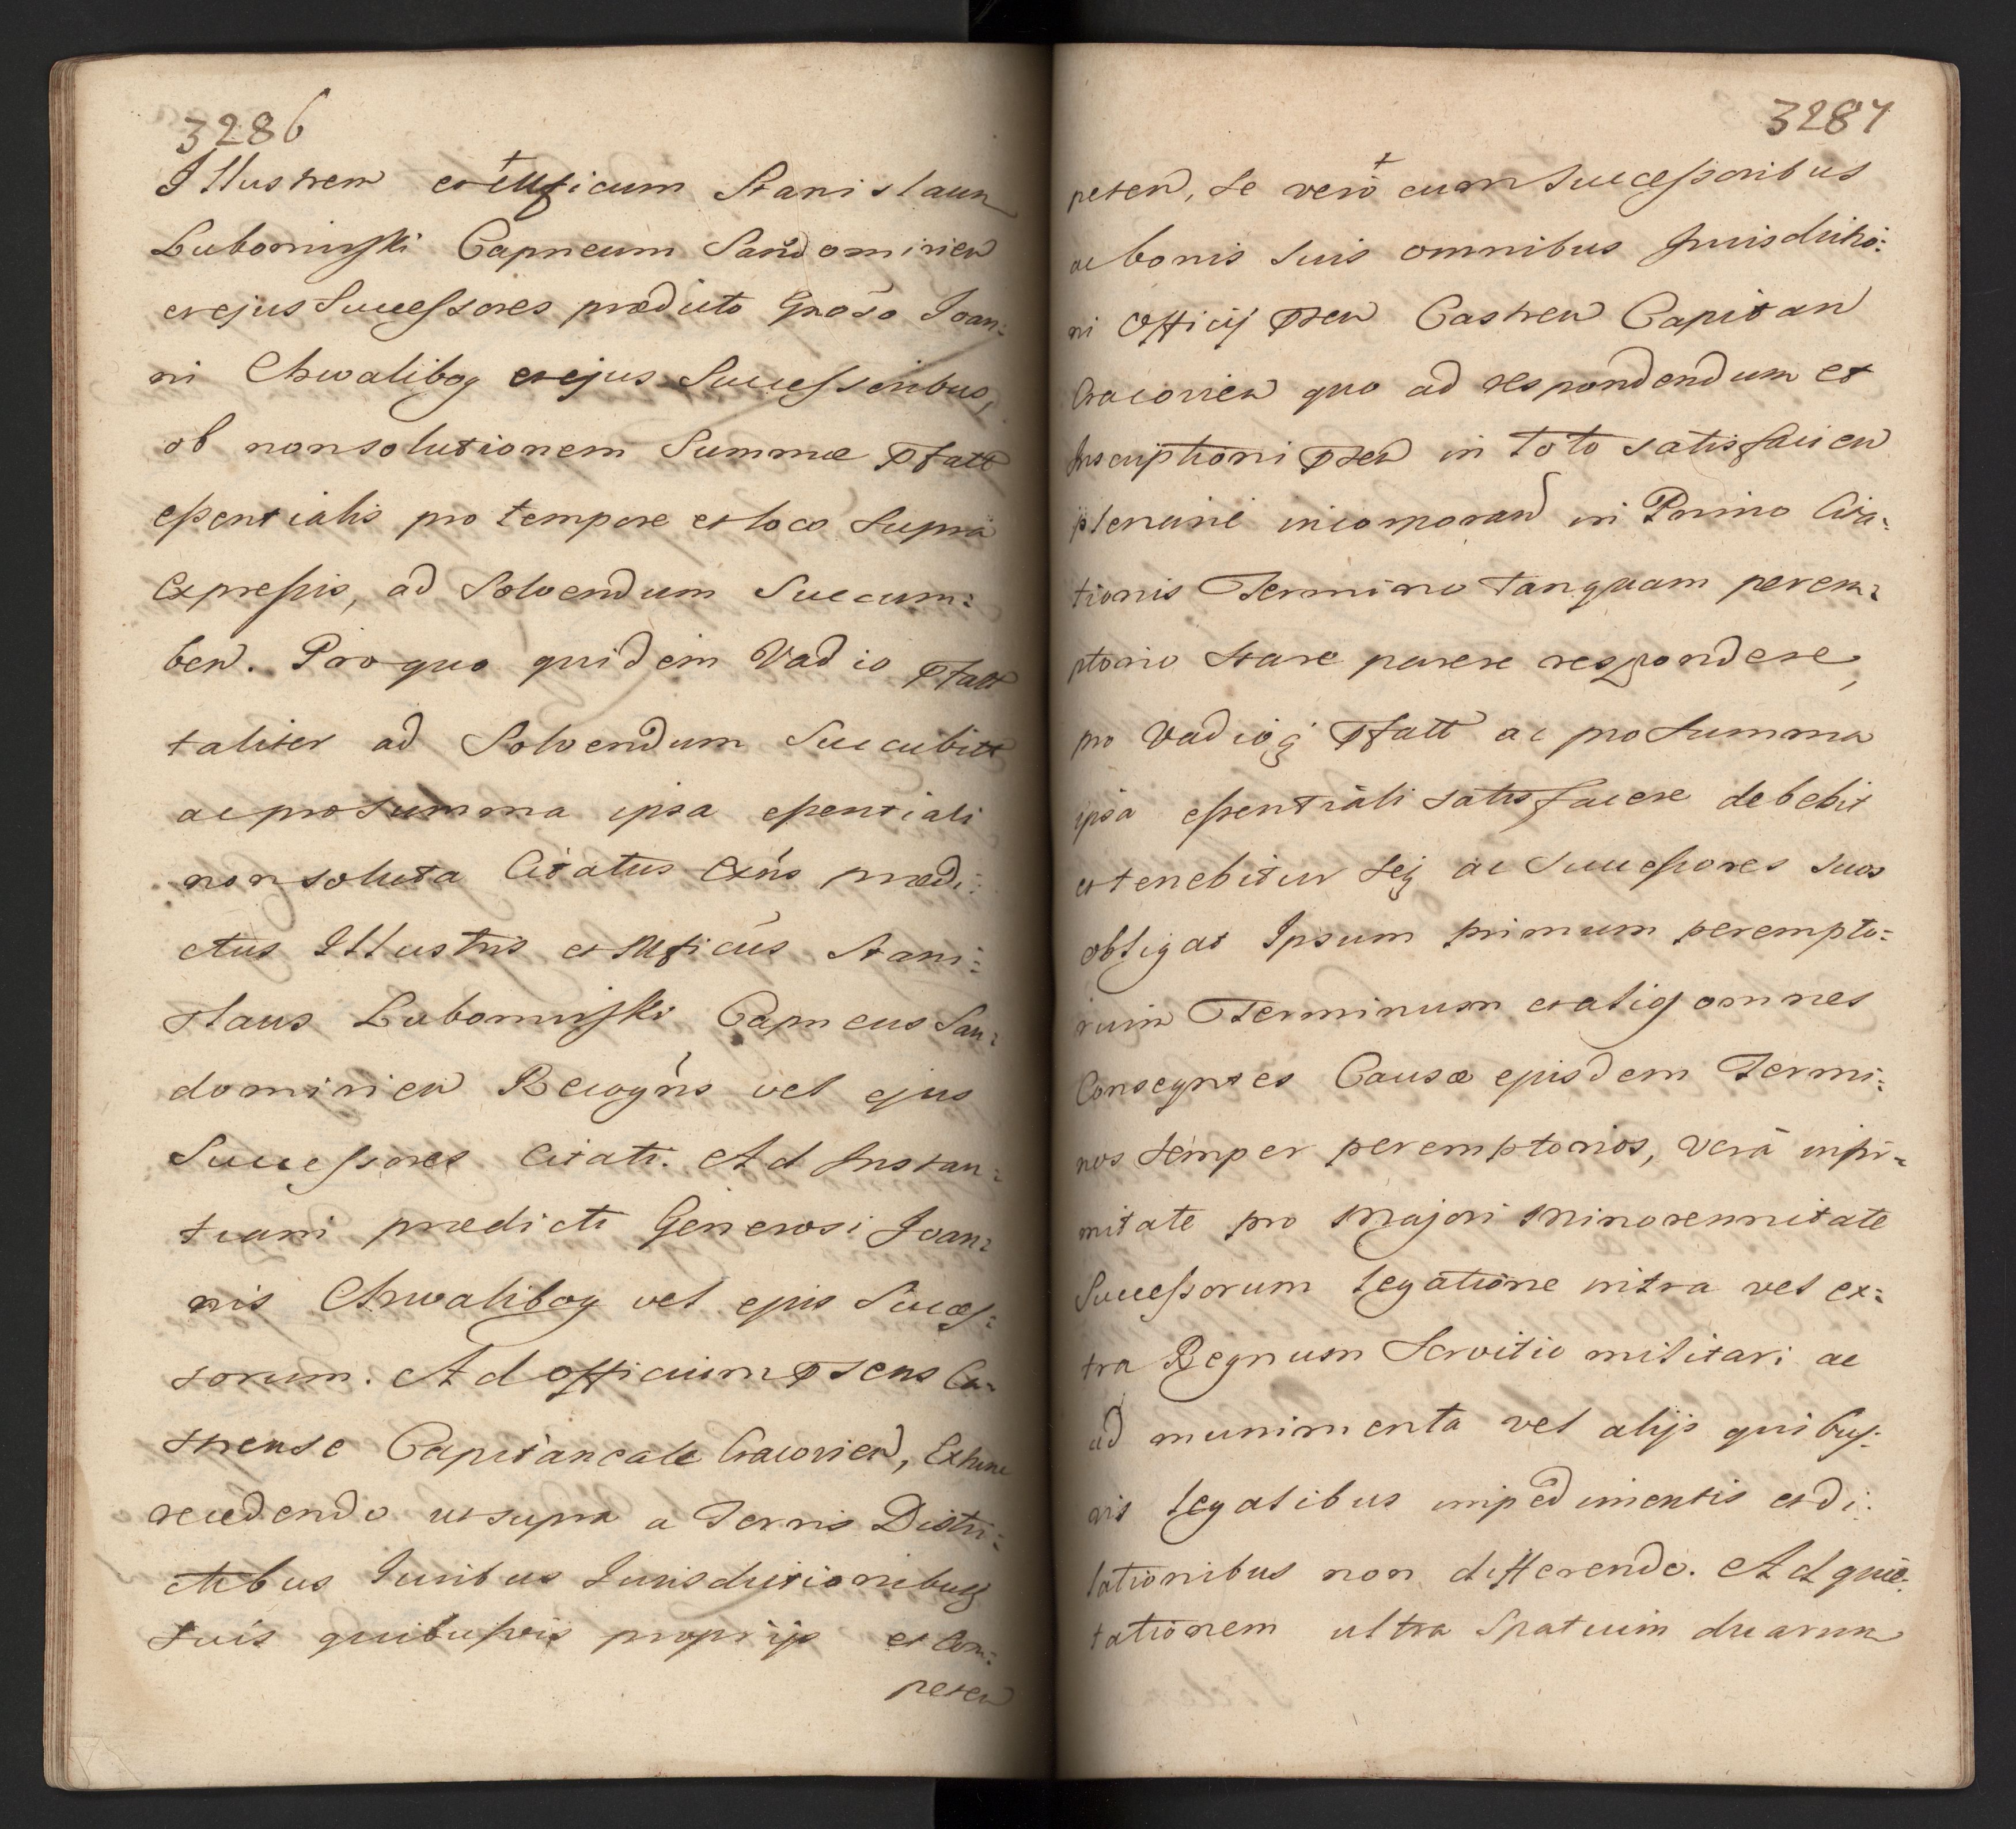 3286
Illustrem et Mficum Stanislaum
Lubomirski Capneum Sandomirien
et ejus Successores prædicto Gnoso Joan:
ni Chwalibog et ejus Successoribus,
ob nonsolutionem Summæ Pfatt
essentialis pro tempore et loco supra
Expressis, ad Solvendum Succum:
ben. Pro quo quidem Vadio Pfatt
taliter ad Solvendum Succubitt
ac pro Summa ipsa essentiali
non soluta Citatus Exñs prædi:
ctus Illustris et Mficus Stani:
slaus Lubomirski Capneus San:
domirien Recogñs vel ejus
Successores Citati. Ad Instan:
tiam prædicti Generosi Joan:
nis Chwalibog vel ejus Succes:
sorum. Ad Officium Psens Ca:
strense Capitaneale Cracovien, Exhinc
recedendo ut supra a Terris Distri:
ctibus Juribus Jurisdictionibusq
suis quibusvis proprijs et Com:
peten
3287
peten, se vero cum Successoribus
ac bonis suis omnibus Jurisdictio:
ni Officij Psen Castren Capitan
Cracovien quo ad respondendum et
Inscriptioni Psen in toto satisfacien
plenarie incorporand in Primo Cita:
tionis Termino tanquam perem:
ptorio stare parere respondere,
pro Vadioq Pfatt ac pro Summa
ipsa essentiali satisfacere debebit
et tenebitur seq ac Successores suos
obligat Ipsum primum perempto:
rium Terminum et aliosq omnes
Conseqntes Causæ ejusdem Termi:
nos semper peremptorios, Vera infir:
mitate pro Majori Minorennitate
Successorum legatione intra vel ex:
tra Regnum Servitio militari ac
ad munimenta vel alijs quibus:
vis legalibus impedimentis et di:
lationibus non differendo. Ad quie:
tationem ultra Spatium duarum